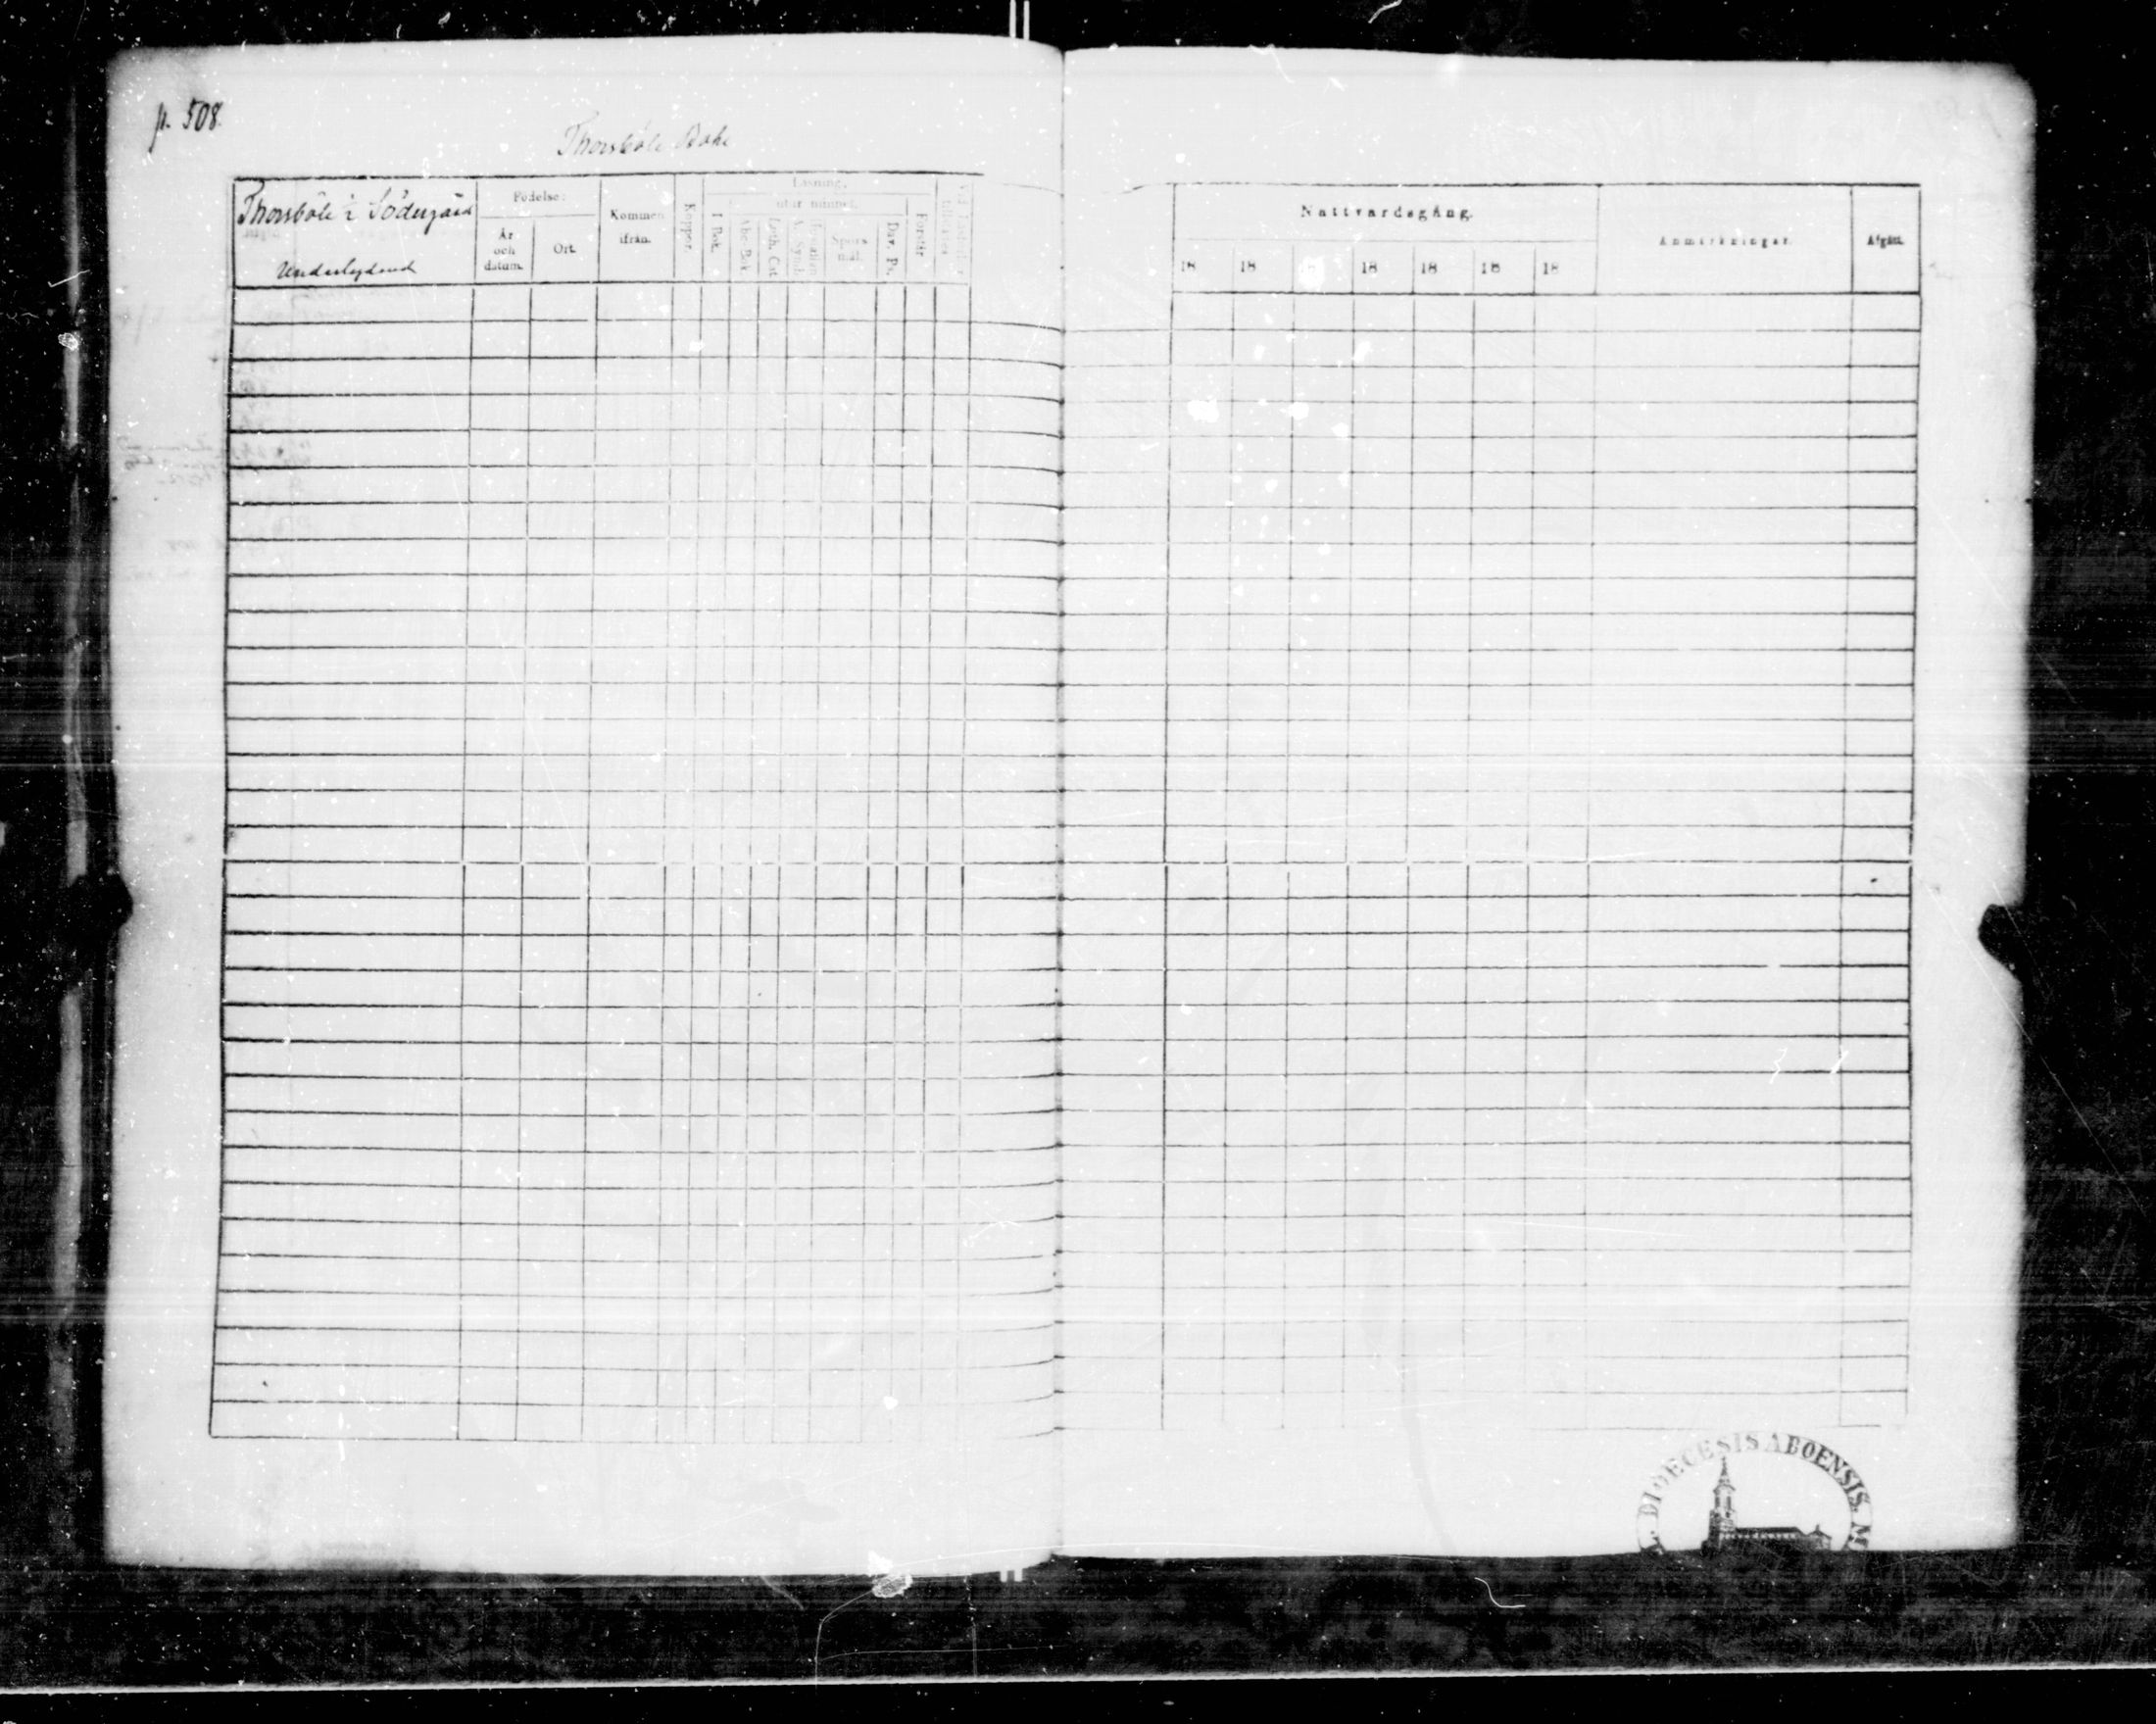 p. 508.
Thorsböle
Thorsböle i Södergård
Underlydand
Födelse:
År och datum.
Ort.
Kommen ifrån.
Koppor.
Läsning.
I Bok.
utur minnet.
Abc-Bok
Luth. Cat.
Spörsmål.
Dav. Ps.
Förstår
Nattvardsgång.
18 18 18 18 18 18
Anmärkningar.
Afgått.
DIOECESIS ABOENSIS. M